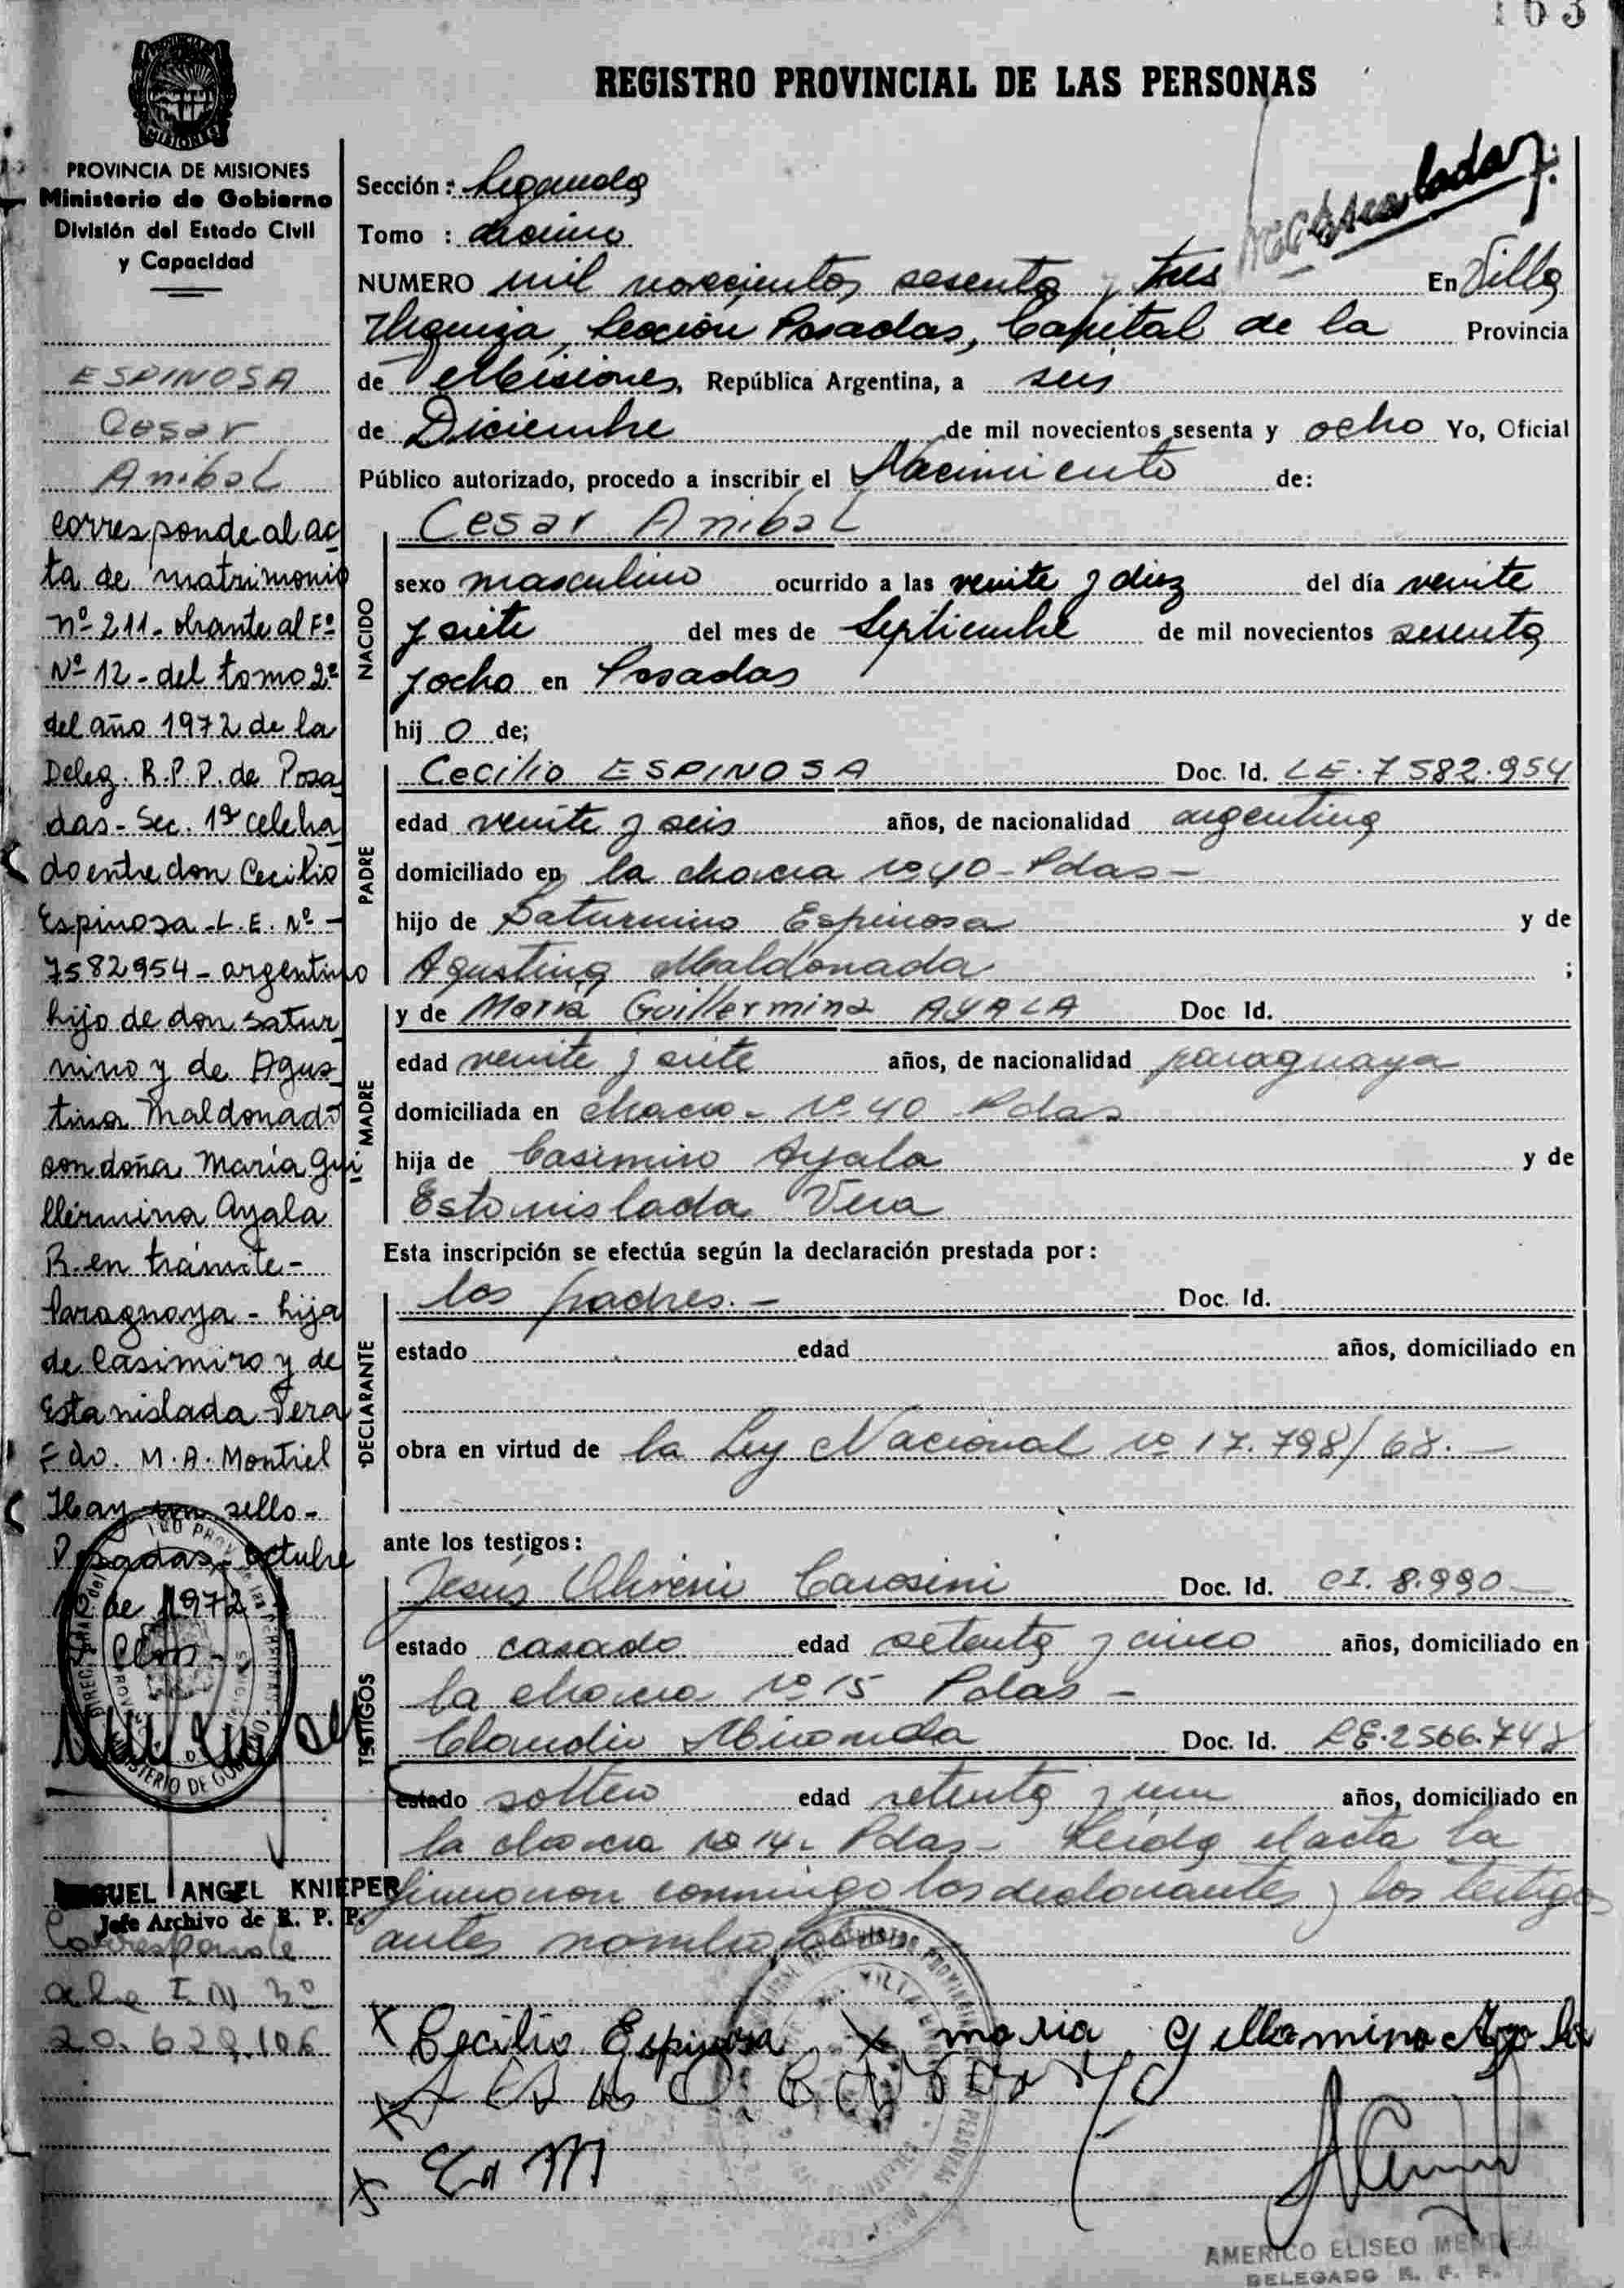 163
REGISTRO PROVINCIAL DE LAS PERSONAS
MISIONES
PROVINCIA DE MISIONES
Ministerio de Gobierno
División del Estado Civil
y Capacidad
ESPINOSA
Cesar
Anibal
corresponde al ac
ta de matrimonio
nº 211 - obrante al Fº
Nº 12 - del tomo 2º
del año 1972 de la
Deleg. R.P.P. de Posa
das - Sec. 1ª celebra
do entre don Cecilio
Espinosa - L.E. Nº -
7582954 - argentino
hijo de don Satur
nino y de Agus
tina Maldonado
con doña María Gui
llermina Ayala
R. en trámite -
Paraguaya - hija
de Casimiro y de
Estanislada Vera
Fdo. M.A. Montiel
Hay un sello -
Posadas - octubre
de 1972
MIGUEL ANGEL KNIEPER
Jefe Archivo de R. P. P.
Corresponde
20.629.106
Sección: Segunda
Tomo : décimo
NUMERO mil novecientos sesenta y tres En Villa
Urquiza, Sección Posadas, Capital de la Provincia
de Misiones, República Argentina, a seis
de Diciembre de mil novecientos sesenta y ocho Yo, Oficial
Público autorizado, procedo a inscribir el Nacimiento de:
NACIDO
Cesar Anibal
sexo masculino ocurrido a las veinte y diez del día veinte
y siete del mes de Septiembre de mil novecientos sesenta
y ocho en Posadas
hij o de;
PADRE
Cecilio ESPINOSA Doc. Id. LE. 7582.954
edad veinte y seis años, de nacionalidad argentina
domiciliado en la chacra nº 40 - Pdas -
hijo de Saturnino Espinosa y de
Agustina Maldonada ;
MADRE
y de Maria Guillermina AYALA Doc Id.
edad veinte y siete años, de nacionalidad paraguaya
domiciliada en chacra - nº 40 - Pdas
hija de Casimiro Ayala y de
Estanislada Vera
Esta inscripción se efectúa según la declaración prestada por:
DECLARANTE
los padres. - Doc. Id.
estado edad años, domiciliado en
obra en virtud de la Ley Nacional nº 17.798/68. -
ante los testigos:
TESTIGOS
Jesús Carosini Doc. Id. CI. 8.990
estado casado edad setenta y cinco años, domiciliado en
la chacra nº 15 Pdas -
Claudio Miranda Doc. Id. LE. 2566.748
estado soltero edad setenta y un años, domiciliado en
la chacra nº 14 - Pdas - Leída el acta la
firmaron conmigo los declarantes y los testigos
antes nombrados
x Cecilio Espinosa x maria gellamina Ayala
AMERICO ELISEO MENDEZ
DELEGADO R. P. P.